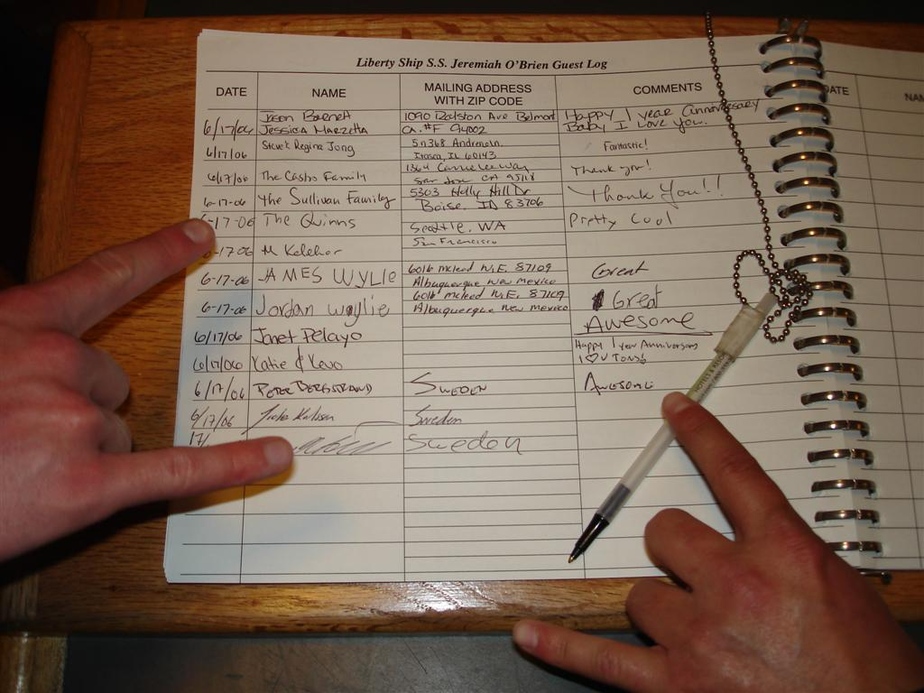 Liberty Ship S.S. Jeremiah O'Brien Guest Log
DATE NAME MAILING ADDRESS WITH ZIP CODE COMMENTS DATE NAM
Jason 1090 Ralston Ave Belmont Happy 1 year anniversary
6/17/06 Jessica CA. #F 94002 Baby I love you.
6/17/06 Steve & Regina Jong 5N368 Andrene Ln. Fantastic!
Itasca, IL 60143
6/17/06 The Castro Family 1364 Thank you!
San Jose CA
6-17-06 The Sullivan Family 5303 Holly Hill Dr Thank You!!
Boise, ID 83706
6-17-06 The Quinns Seattle, WA Pretty Cool
6-17-06 M Keleher San Francisco
6-17-06 JAMES WYLIE 6016 Mcleod N.E. 87109 Great
Albuquerque New Mexico
6-17-06 Jordan wylie 6016 Mcleod N.E. 87109 Great
Albuquerque New Mexico
6/17/06 Janet Pelayo Awesome
6/17/06 Katie & Kevo Happy 1 year Anniversary
I ♡ U TONS
6/17/06 PETER BERGSTRAND SWEDEN Awesome
6/17/06 Sweden
17/ Sweden